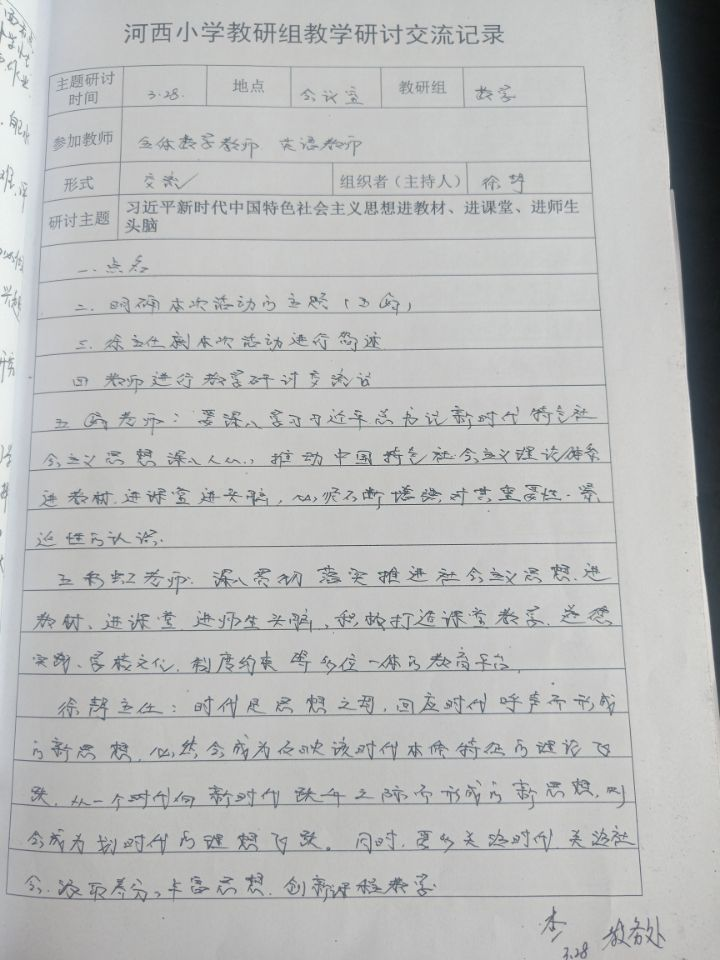 河西小学教研组教学研讨交流记录
主题研讨时间 3.28. 地点 会议室 教研组 数学
参加教师 全体数学教师 英语教师
形式 交流 组织者（主持人） 徐静
研讨主题 习近平新时代中国特色社会主义思想进教材、进课堂、进师生
头脑
一.点名
二.明确本次活动的主题
三.徐主任对本次活动进行简述
四 教师进行教学研讨交流
老师：要深入学习习近平总书记新时代特色社
会主义思想深入人心，推动中国特色社会主义理论体系
进教材.进课堂进头脑，必须不断增强对其重要性.紧
迫性的认识.
王彩虹老师.深入贯彻落实推进社会主义思想.进
教材、进课堂 进师生头脑、积极打造课堂教学.
实践、学校文化.制度约束等多位一体的教育平台.
徐静主任：时代是思想之母，回应时代呼声而形成
的新思想，必然会成为反映该时代本质特征的理论飞
跃，从一个时代向新时代跃升之际而形成的新思想.则
会成为划时代的理想飞跃。同时.要多关注时代.关注社
会.汲取养分.丰富思想.创新课程教学
3.28 教务处